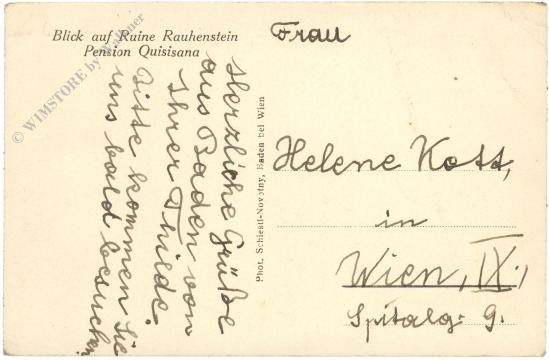 Blick auf Ruine Rauhenstein
Pension Quisisana
Herzliche Grüße
aus Baden von
Ihrer Thilde.
Bitte kommen Sie
uns bald besuchen!
Phot. Schiestl-Novotny, Baden bei Wien
Frau
Helene Kott,
in
Wien, IX.,
Spitalg. 9.
© WIMSTORE by Wimmer